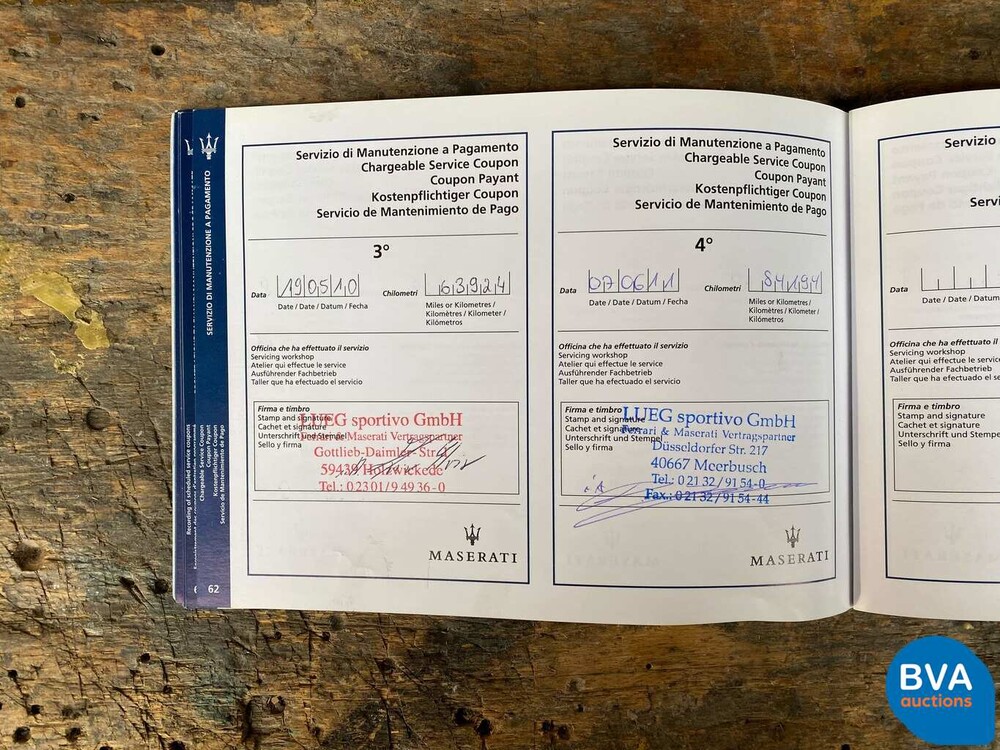 SERVIZIO DI MANUTENZIONE A PAGAMENTO
Recording of scheduled service coupons
Chargeable Service Coupon
Coupon Payant
Kostenpflichtiger Coupon
Servicio de Mantenimiento de Pago
62
Servizio di Manutenzione a Pagamento
Chargeable Service Coupon
Coupon Payant
Kostenpflichtiger Coupon
Servicio de Mantenimiento de Pago
3°
Data 190510
Date / Date / Datum / Fecha
Chilometri 63924
Miles or Kilometres /
Kilomètres / Kilometer /
Kilómetros
Officina che ha effettuato il servizio
Servicing workshop
Atelier qui effectue le service
Ausführender Fachbetrieb
Taller que ha efectuado el servicio
Firma e timbro
Stamp and signature
Cachet et signature
Unterschrift und Stempel
Sello y firma
LUEG sportivo GmbH
Ferrari & Maserati Vertragspartner
Gottlieb-Daimler-Str.
59439 Holzwickede
Tel.: 0 23 01 / 9 49 36 - 0
MASERATI
Servizio di Manutenzione a Pagamento
Chargeable Service Coupon
Coupon Payant
Kostenpflichtiger Coupon
Servicio de Mantenimiento de Pago
4°
Data 070611
Date / Date / Datum / Fecha
Chilometri 84194
Miles or Kilometres /
Kilomètres / Kilometer /
Kilómetros
Officina che ha effettuato il servizio
Servicing workshop
Atelier qui effectue le service
Ausführender Fachbetrieb
Taller que ha efectuado el servicio
Firma e timbro
Stamp and signature
Cachet et signature
Unterschrift und Stempel
Sello y firma
LUEG sportivo GmbH
Ferrari & Maserati Vertragspartner
Düsseldorfer Str. 217
40667 Meerbusch
Tel.: 0 21 32 / 91 54-0
Fax.: 0 21 32 / 91 54-44
MASERATI
Servizio
Servi
Data
Date / Date / Datum
Officina che ha effettuato il
Servicing workshop
Atelier qui effectue le service
Ausführender Fachbetrieb
Taller que ha efectuado el se
Firma e timbro
Stamp and signature
Cachet et signature
Unterschrift und Stempel
Sello y firma
BVA
auctions